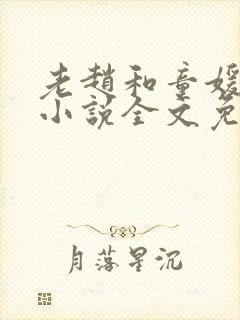 老趙和童媛
小說全文免
月落星沉